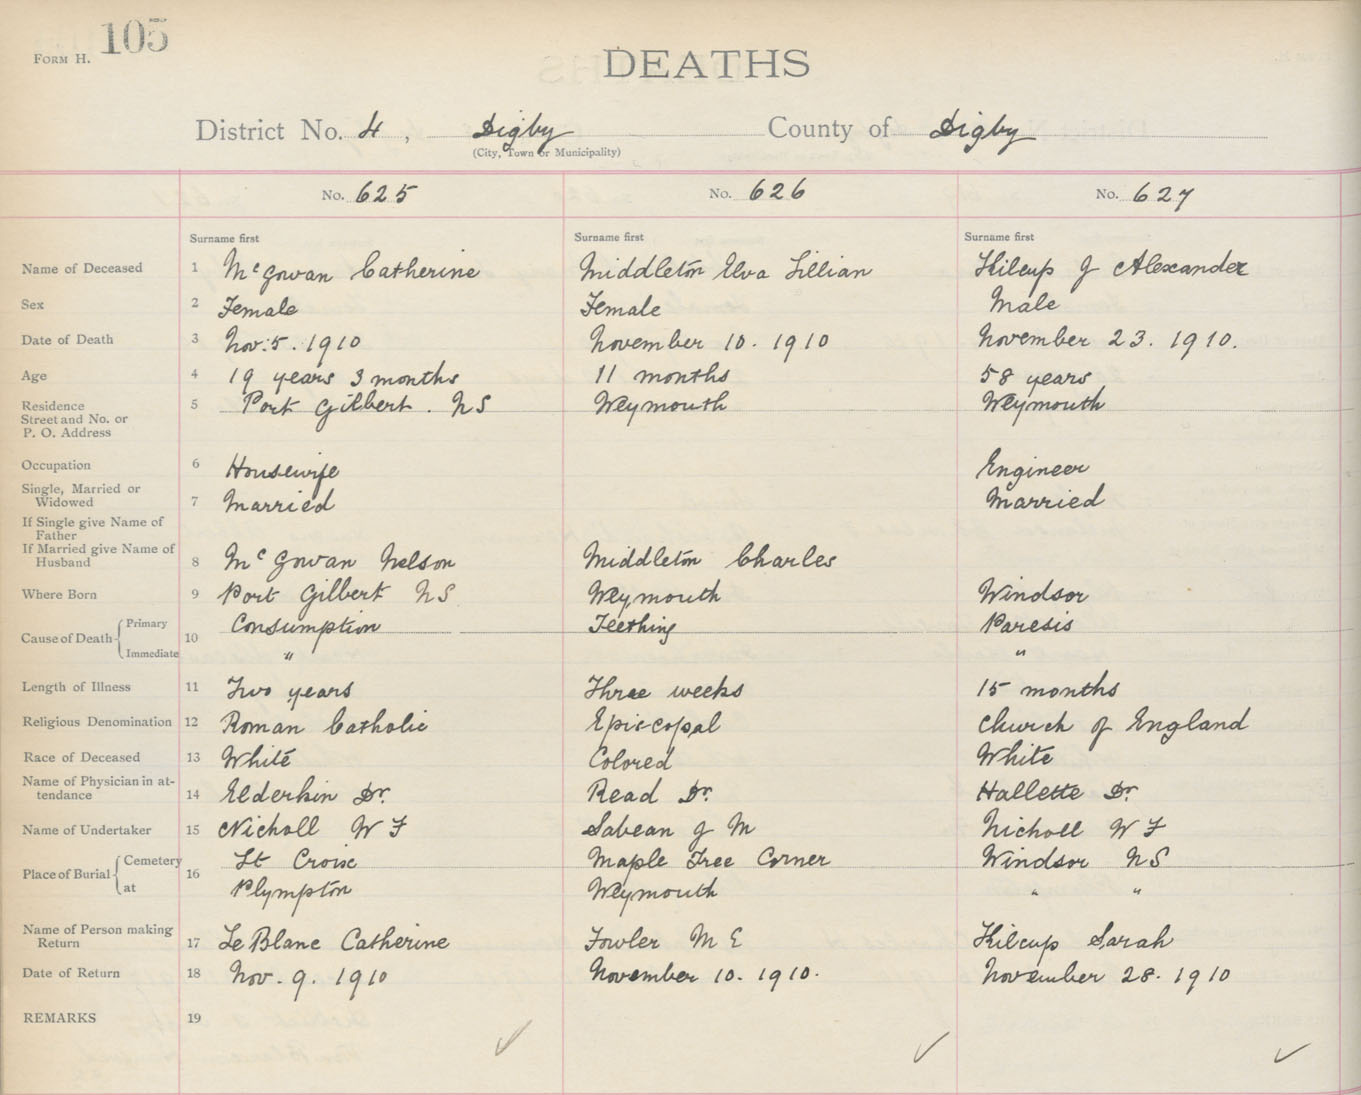 FORM H. 105
DEATHS
District No. 4, Digby County of Digby
(City, Town or Municipality)
No. 625 No. 626 No. 627
Surname first Surname first Surname first
Name of Deceased 1 McGowan Catherine Middleton Elva Lillian Kilcup J Alexander
Sex 2 Female Female Male
Date of Death 3 Nov. 5. 1910 November 10. 1910 November 23. 1910.
Age 4 19 years 3 months 11 months 58 years
Residence 5 Port Gilbert. NS Weymouth Weymouth
Street and No. or
P. O. Address
Occupation 6 Housewife Engineer
Single, Married or
Widowed 7 Married Married
If Single give Name of
Father
If Married give Name of
Husband 8 McGowan Nelson Middleton Charles
Where Born 9 Port Gilbert NS Weymouth Windsor
Cause of Death Primary 10 Consumption Teething Paresis
Immediate " "
Length of Illness 11 Two years Three weeks 15 months
Religious Denomination 12 Roman Catholic Episcopal Church of England
Race of Deceased 13 White Colored White
Name of Physician in at-
tendance 14 Elderkin Dr. Read Dr. Hallette Dr.
Name of Undertaker 15 Nicholl W F Sabean J M Nicholl W F
Place of Burial Cemetery 16 St Croix Maple Tree Corner Windsor NS
at Plympton Weymouth " "
Name of Person making
Return 17 LeBlanc Catherine Fowler M E Kilcup Sarah
Date of Return 18 Nov. 9. 1910 November 10. 1910. November 28. 1910
REMARKS 19